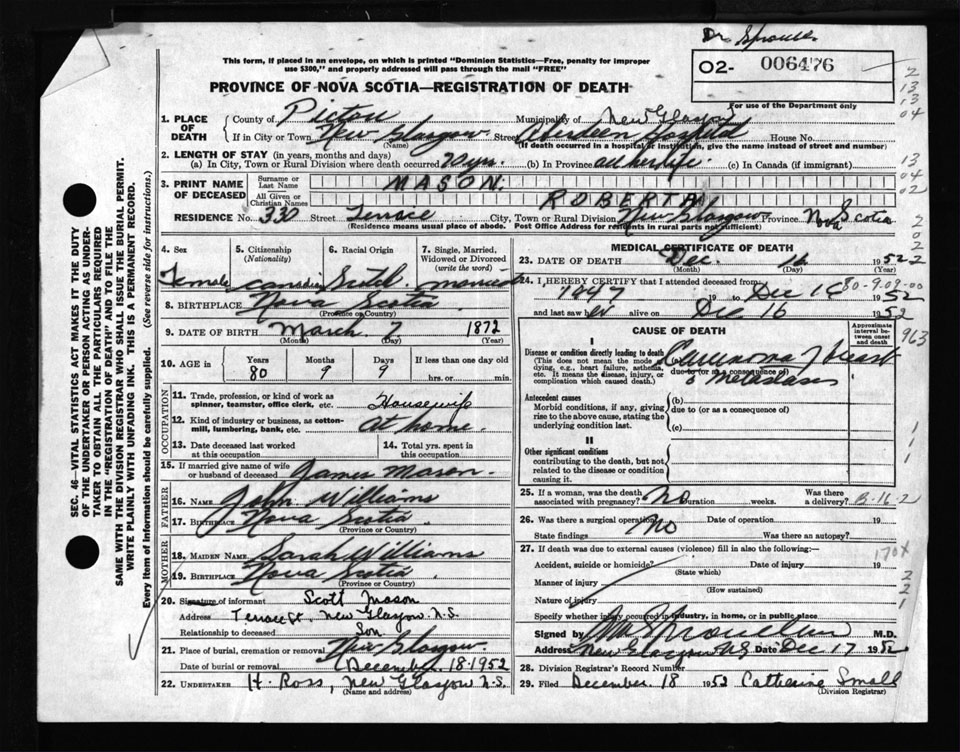 Dr Sprouse.
This form, if placed in an envelope, on which is printed "Dominion Statistics—Free, penalty for improper
use $300," and properly addressed will pass through the mail "FREE"
02- 006476
PROVINCE OF NOVA SCOTIA—REGISTRATION OF DEATH
For use of the Department only
1. PLACE OF DEATH
County of Pictou Municipality of New Glasgow
If in City or Town New Glasgow Street Aberdeen Hospital House No.
(Name) (If death occurred in a hospital or institution, give the name instead of street and number)
2. LENGTH OF STAY (in years, months and days)
(a) In City, Town or Rural Division where death occurred 70 yrs. (b) In Province all her life. (c) In Canada (if immigrant)
3. PRINT NAME OF DECEASED
Surname or Last Name MASON.
All Given or Christian Names ROBERTA
RESIDENCE No. 330 Street Terrace City, Town or Rural Division New Glasgow Province Nova Scotia
(Residence means usual place of abode. Post Office Address for residents in rural parts not sufficient)
4. Sex Female
5. Citizenship (Nationality) Canadian
6. Racial Origin Scotch
7. Single, Married, Widowed or Divorced (write the word) married
8. BIRTHPLACE Nova Scotia
(Province or Country)
9. DATE OF BIRTH March 7 1872
(Month) (Day) (Year)
10. AGE in Years Months Days If less than one day old
80 9 9 hrs. or min.
OCCUPATION
11. Trade, profession, or kind of work as spinner, teamster, office clerk, etc. Housewife
12. Kind of industry or business, as cotton-mill, lumbering, bank, etc. At home.
13. Date deceased last worked at this occupation
14. Total yrs. spent in this occupation
15. If married give name of wife or husband of deceased James Mason.
FATHER
16. NAME John Williams
17. BIRTHPLACE Nova Scotia.
(Province or Country)
MOTHER
18. MAIDEN NAME Sarah Williams
19. BIRTHPLACE Nova Scotia
(Province or Country)
20. Signature of informant Scott Mason
Address Terrace St. New Glasgow. N.S.
Relationship to deceased Son
21. Place of burial, cremation or removal New Glasgow.
Date of burial or removal December. 18. 1952
22. UNDERTAKER H. Ross, New Glasgow N.S.
(Name and address)
MEDICAL CERTIFICATE OF DEATH
23. DATE OF DEATH Dec. 16 1952
(Month) (Day) (Year)
24. I HEREBY CERTIFY that I attended deceased from:
1947 19 to Dec 16 1952
and last saw her alive on Dec 16 1952
CAUSE OF DEATH
Approximate interval between onset and death
I
Disease or condition directly leading to death (This does not mean the mode of dying, e.g., heart failure, asthenia, etc. It means the disease, injury, or complication which caused death.)
Carcinoma of breast
due to (or as a consequence of)
c̄ metastases
Antecedent causes
Morbid conditions, if any, giving rise to the above cause, stating the underlying condition last.
(b)
due to (or as a consequence of)
(c)
II
Other significant conditions
contributing to the death, but not related to the disease or condition causing it.
25. If a woman, was the death associated with pregnancy? No Duration weeks. Was there a delivery?
B-16-2
26. Was there a surgical operation? No Date of operation 19
State findings Was there an autopsy?
27. If death was due to external causes (violence) fill in also the following:—
Accident, suicide or homicide? Date of injury 19
(State which)
Manner of injury
(How sustained)
Nature of injury
Specify whether injury occurred in industry, in home, or in public place
Signed by M.D.
Address New Glasgow NS Date Dec 17 1952
28. Division Registrar's Record Number
29. Filed December. 18 1952 Catherine Small
(Division Registrar)
80-9-09-00
963
170X
2
13
13
04
13
04
02
2
0
2
2
1
1
2
2
1
SEC. 46—VITAL STATISTICS ACT MAKES IT THE DUTY
OF THE UNDERTAKER OR PERSON ACTING AS UNDER-
TAKER TO OBTAIN ALL THE PARTICULARS REQUIRED
IN THE "REGISTRATION OF DEATH" AND TO FILE THE
SAME WITH THE DIVISION REGISTRAR WHO SHALL ISSUE THE BURIAL PERMIT.
WRITE PLAINLY WITH UNFADING INK. THIS IS A PERMANENT RECORD.
Every item of Information should be carefully supplied. (See reverse side for instructions.)